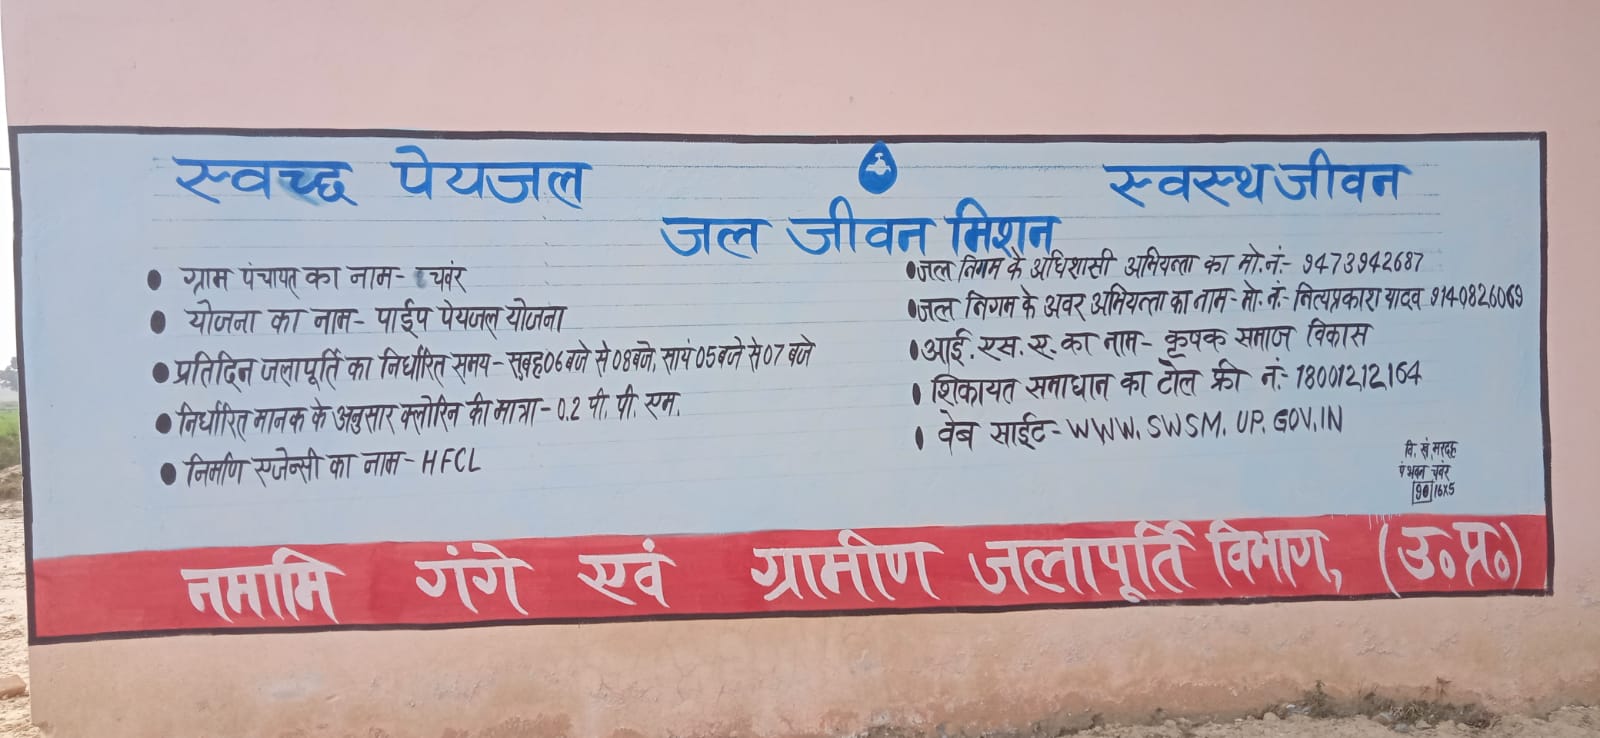 स्वच्छ पेयजल
स्वस्थ जीवन
जल जीवन मिशन
ग्राम पंचायत का नाम- चवंर
योजना का नाम- पाईप पेयजल योजना
प्रतिदिन जलापूर्ति का निर्धारित समय- सुबह 06 बजे से 08 बजे, सायं 05 बजे से 07 बजे
निर्धारित मानक के अनुसार क्लोरिन की मात्रा- 0.2 पी. पी. एम.
निर्माण एजेन्सी का नाम- HFCL
जल निगम के अधिशासी अभियन्ता का मो. नं:- 9473942687
जल निगम के अवर अभियन्ता का नाम- मो. नं:- नित्यप्रकाश यादव 9140826069
आई. एस. ए. का नाम- कृषक समाज विकास
शिकायत समाधान का टोल फ्री नं:- 18001212164
वेब साईट- WWW. SWSM. UP. GOV. IN
वि. खं. मरदह
पं भवन चवंर
90 16X5
नमामि गंगे एवं ग्रामीण जलापूर्ति विभाग, (उ॰ प्र॰)